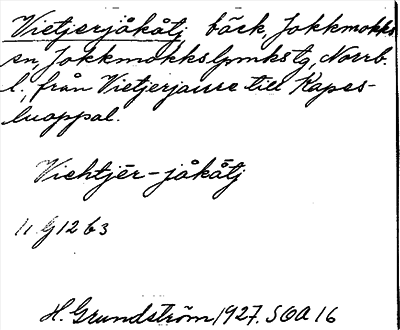 Vietjerjåkåtj bäck, Jokkmokks
sn, Jokkmokks lpmks tg, Norrb.
l., från Vietjerjaure till Kapes-
luoppal.
Viehtjēr-jåkåtj
11 G 12 b 3
H. Grundström 1927. SOA 16